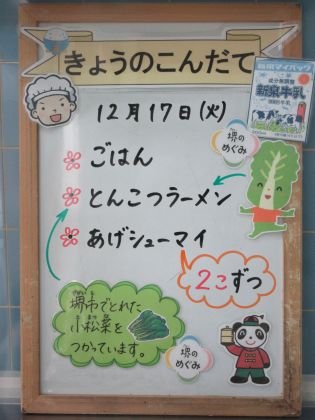 きょうのこんだて
12月17日(火)
ごはん
とんこつラーメン
あげシューマイ
2こずつ
堺の
めぐみ
堺市でとれた
小松菜を
つかっています。
堺の
めぐみ
成分無調整
新泉牛乳